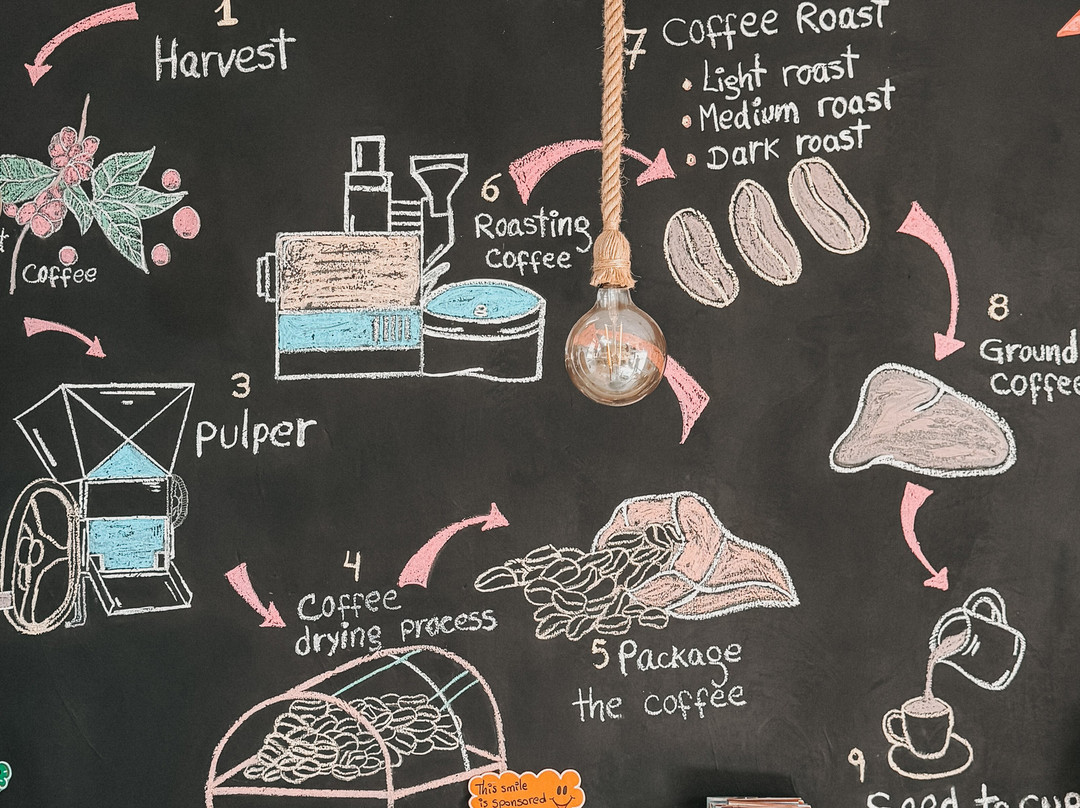 1
Harvest
Coffee
3
Pulper
4
Coffee
drying process
5 Package
the coffee
6
Roasting
coffee
7 Coffee Roast
• Light roast
• Medium roast
• Dark roast
8
Ground
coffee
9
Seed to cup
This smile
is sponsored